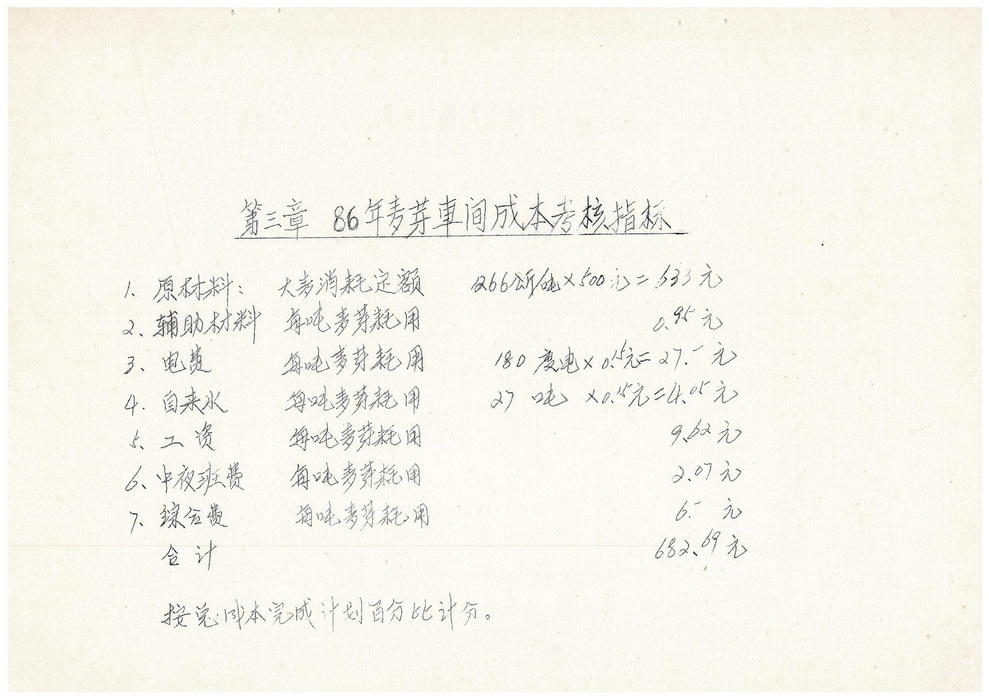 第三章 86年麦芽車间成本考核指标
1. 原材料： 大麦消耗定额 1266公斤/吨×500元=633元
2. 辅助材料 每吨麦芽耗用 0.95元
3. 电费 每吨麦芽耗用 180度电×0.15元=27.-元
4. 自来水 每吨麦芽耗用 27吨×0.15元=4.05元
5. 工资 每吨麦芽耗用 9.62元
6. 中夜班费 每吨麦芽耗用 2.07元
7. 综合费 每吨麦芽耗用 6.-元
合计 682.69元
按总成本完成计划百分比计分。